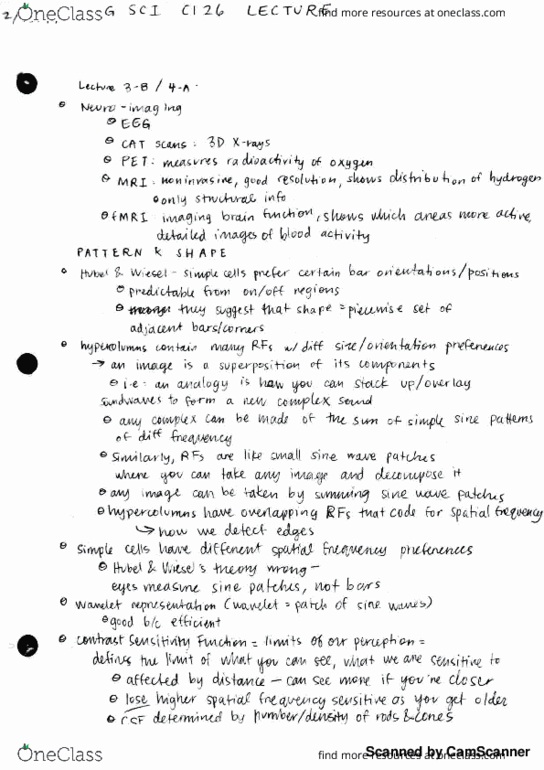 2/ OneClass G SCI C126 LECTURE find more resources at oneclass.com
Lecture 3-B / 4-A
Neuro-imaging
EEG
CAT scans: 3D X-rays
PET: measures radioactivity of oxygen
MRI: noninvasive, good resolution, shows distribution of hydrogen
only structural info
fMRI: imaging brain function, shows which areas more active,
detailed images of blood activity
PATTERN & SHAPE
Hubel & Wiesel - simple cells prefer certain bar orientations/positions
predictable from on/off regions
they suggest that shape = piecewise set of
adjacent bars/corners
hypercolumns contain many RFs w/ diff size/orientation preferences
→ an image is a superposition of its components
i.e. an analogy is how you can stack up/overlay
soundwaves to form a new complex sound
any complex can be made of the sum of simple sine patterns
of diff frequency
similarly, RFs are like small sine wave patches
where you can take any image and decompose it
any image can be taken by summing sine wave patches
hypercolumns have overlapping RFs that code for spatial frequency
↳ how we detect edges
simple cells have different spatial frequency preferences
Hubel & Wiesel's theory wrong -
eyes measure sine patches, not bars
wavelet representation (wavelet = patch of sine waves)
good b/c efficient
contrast sensitivity function = limits of our perception =
defines the limit of what you can see, what we are sensitive to
affected by distance - can see more if you're closer
lose higher spatial frequency sensitive as you get older
CSF determined by number/density of rods & cones
OneClass find more resources at oneclass.com
Scanned by CamScanner